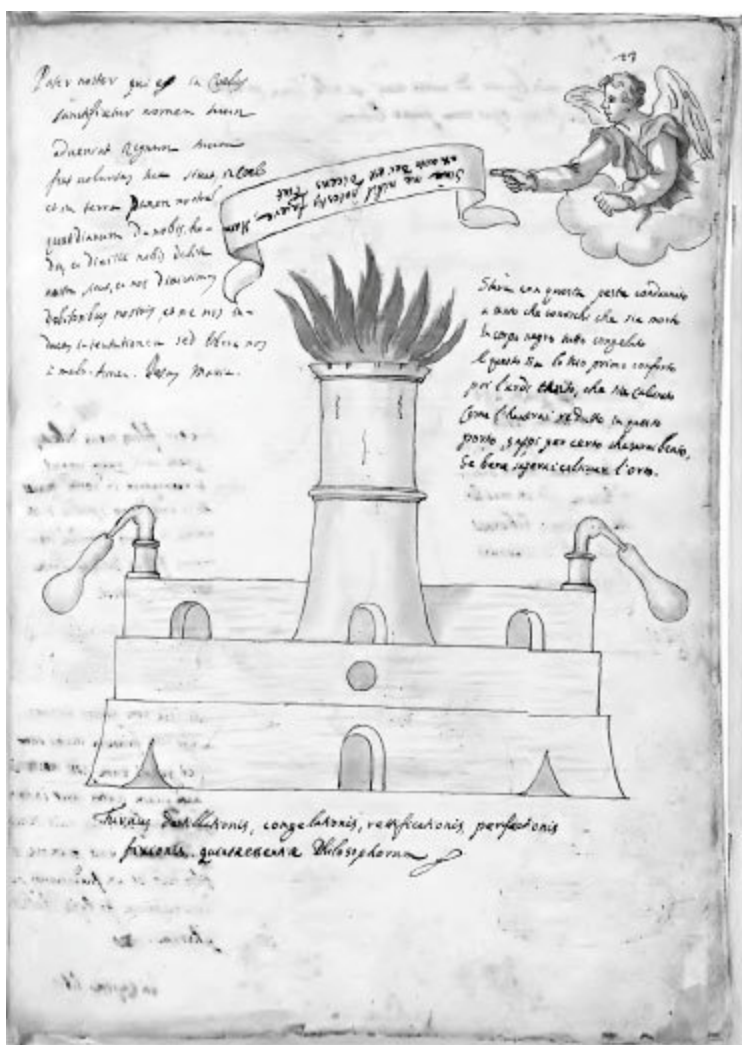 23
Pater noster qui es in Coelis
sanctificetur nomen tuum
adveniat Regnum tuum
fiat voluntas tua sicut in Coelo
et in terra Panem nostrum
quotidianum Da nobis ho-
die, et Dimitte nobis debita
nostra, sicut, et nos Dimittimus
Debitoribus nostris, et ne nos in-
ducas in tentationem sed libera nos
à malo. Amen. Jesus Maria.
Sine me nihil potestis facere. Nam
Dei est Dicens Fiat
con questa pasta
a tanto che conoschi che sia morto
In corpo negro tutto congelato
E questo sia lo tuo primo conforto
per che sia calcinato
Come l'haverai redutto in questo
porto, sappi per certo che sarai beato,
Se bene saperai cultivar l'orto.
Furnus Distillationis, congelationis, rectificationis, perfectionis
fixionis, quintaeessentiae Philosophorum